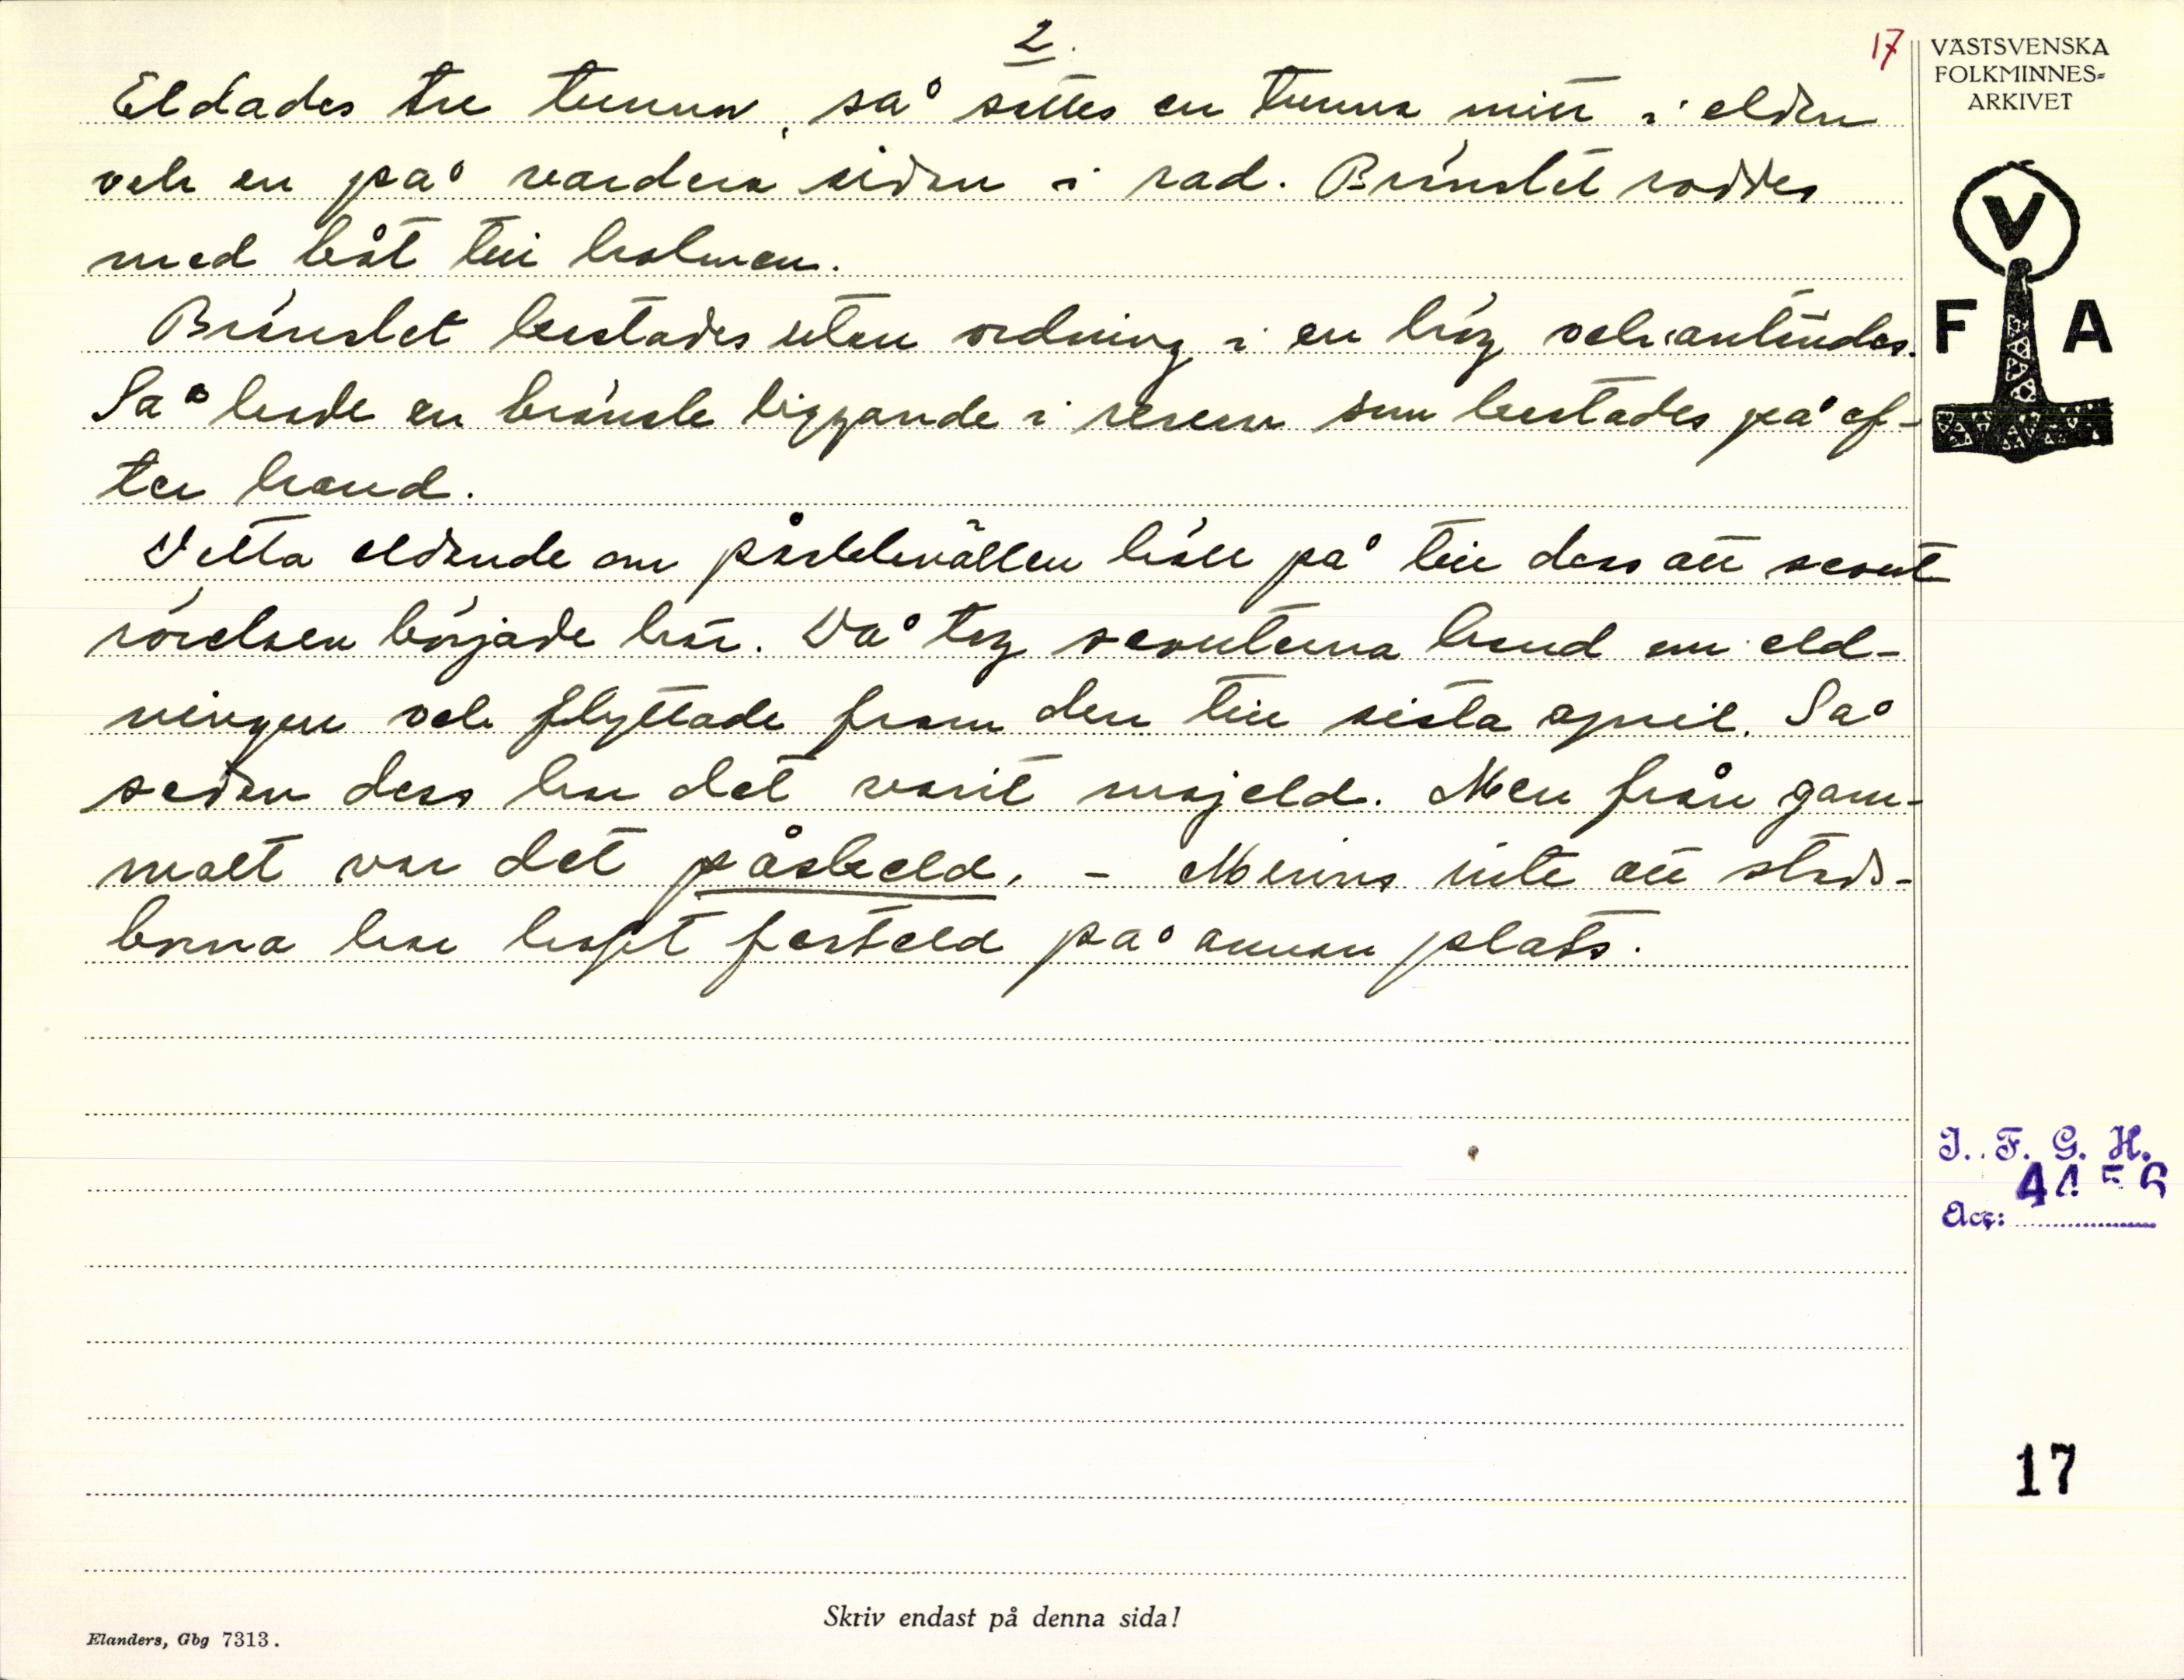 2.
17
Eldades tre tunnor, så sattes en tunna mitt i elden
och en på vardera sidan i rad. Bränslet roddes
med båt till holmen.
Bränslet kastades utan ordning i en hög och antändes.
Så hade en bränsle liggande i reserv som kastades på ef-
ter hand.
Detta eldande om påskkvällen höll på till dess att scout
rörelsen började här. Då tog scouterna hand om eld-
ningen och flyttade fram den till sista april. Så
sedan dess har det varit majeld. Men från gam-
malt var det påskeld. - Minns inte att stads-
borna har haft festeld på annan plats.
VÄSTSVENSKA
FOLKMINNES=
ARKIVET
V
F A
I. F. G. H.
Acc:
17
Skriv endast på denna sida!
Elanders, Gbg 7313.